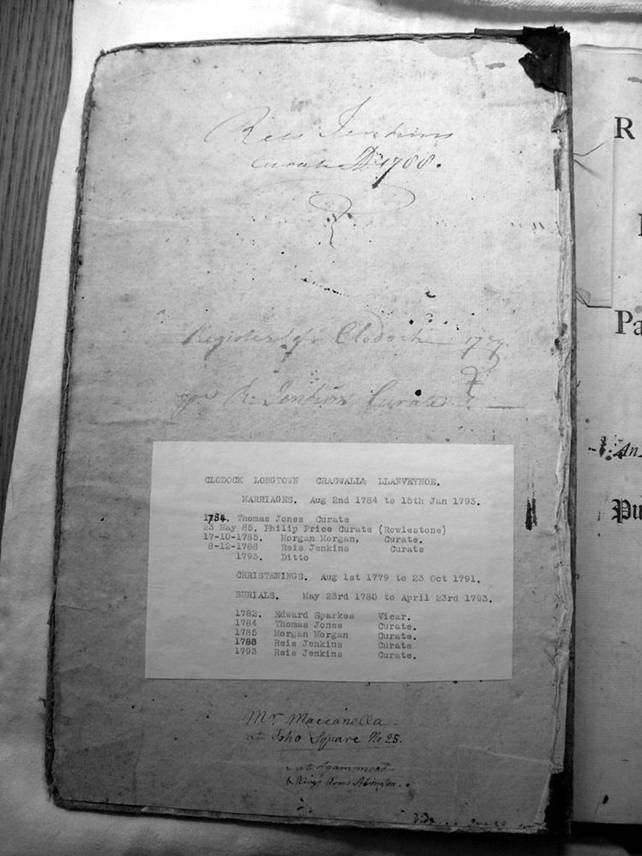 Rees Jenkins
Curate 1788.
Register for Clodock 1779
R. Jenkins Curate
CLODOCK LONGTOWN CRASWALL& LLANVEYNOE.
MARRIAGES. Aug 2nd 1784 to 15th Jan 1793.
1784. Thomas Jones Curate
23 May 85. Philip Price Curate (Rowlestone)
17-10-1785. Morgan Morgan. Curate.
8-12-1788 Reis Jenkins Curate
1793. Ditto
CHRISTENINGS. Aug 1st 1779 to 23 Oct 1791.
BURIALS. May 23rd 1780 to April 23rd 1793.
1782. Edward Sparkes Vicar.
1784 Thomas Jones Curate.
1785 Morgan Morgan Curate.
1788 Reis Jenkins Curate
1793 Reis Jenkins Curate.
Mr. Maccanella.
at Soho Square No 25.
at
Kings Arms Abington.
R
Pa
An
Pu